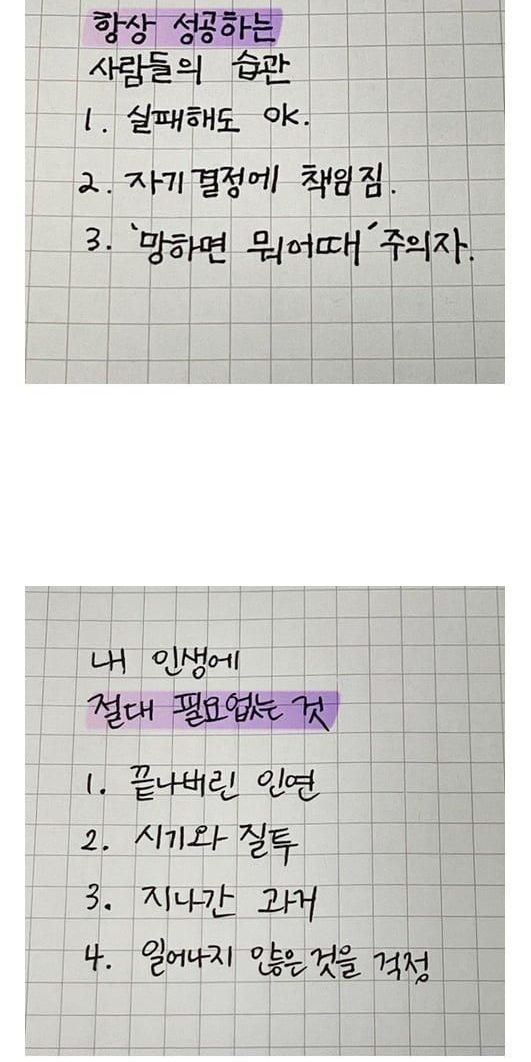 항상 성공하는
사람들의 습관
1. 실패해도 OK.
2. 자기 결정에 책임짐.
3. '망하면 뭐어때' 주의자.
내 인생에
절대 필요없는 것
1. 끝나버린 인연
2. 시기와 질투
3. 지나간 과거
4. 일어나지 않은것을 걱정